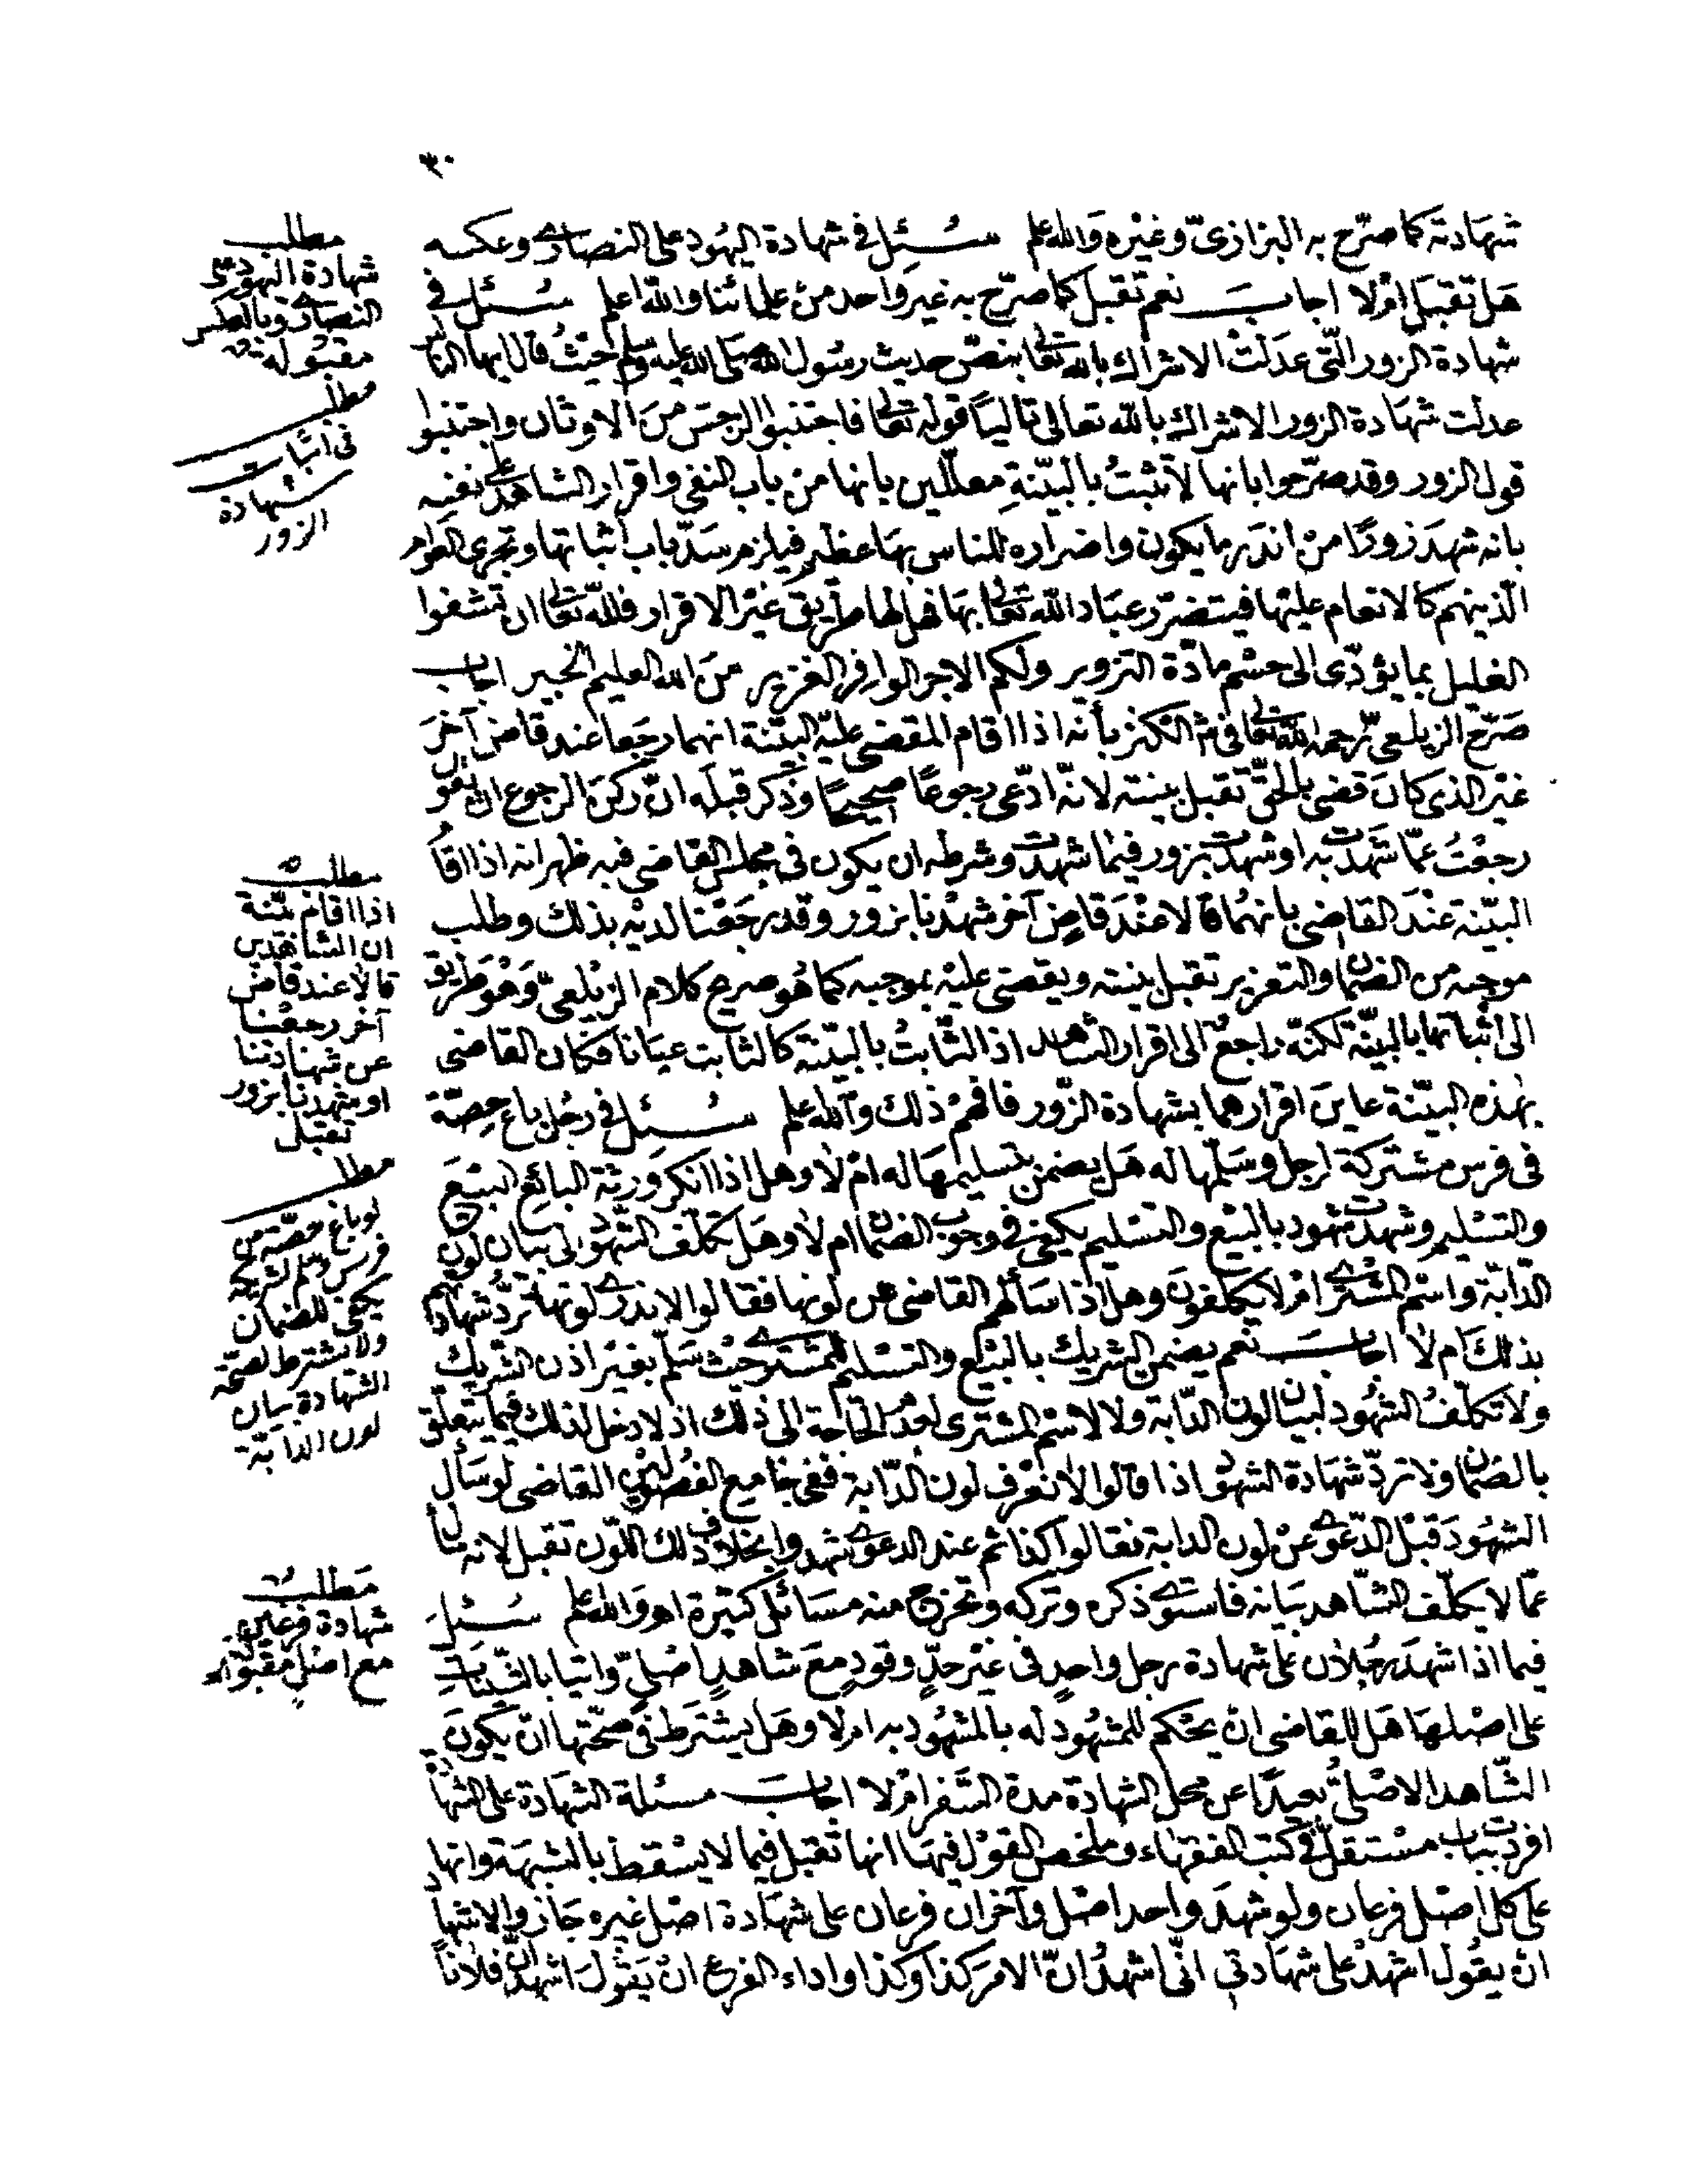 ٣٠
شهادته كما صرّح به البزازىّ وغيره والله اعلم سُئِل فى شهادة اليهود على النصارى وعكسه
هل تقبل ام لا اجاب نعم تقبل كما صرّح به غير واحد من علمائنا والله اعلم سُئل فى
شهادة الزور الّتى عدلت الاشراك بالله تعالى بنصّ حديث رسول الله صلى الله عليه وسلم حيثُ قال ايها الناس
عدلت شهادة الزور الاشراك بالله تعالى تاليًا قوله تعالى فاجتنبوا الرجس من الاوثان واجتنبوا
قول الزور وقد صرّحوا بانها لا تثبتُ بالبيّنةِ معلّلين بانها من باب النفى واقرار الشاهد على نفسه
بانه شهد زورًا من اندر ما يكون واضراره للناس بها عظيم فيلزم سدّ باب اثباتها وتجرى العوام
الّذينهم كالانعام عليها فيتضرّر عباد الله تعالى بها فهل لها طريق غير الاقرار فلله تعالى ان تشفوا
الغليل بما يؤدّى الى حسم مادّة التزوير ولكم الاجر الوافر الغزير من الله العليم الخبير اجاب
صرّح الزيلعىّ رحمه الله تعالى فى ش الكنز بأنه اذا اقام المقضى عليه البيّنة انهما رجعا عند قاض آخر
غير الذى كان قضى بالحقّ تقبل بينته لانّه ادّعى رجوعًا صحيحًا وذكر قبله انّ ركن الرجوع ان يقول
رجعتُ عمّا شهدت به او شهدت بزور فيما شهدت وشرطه ان يكون فى مجلس القاضى فبه ظهر انه اذا اقام
البيّنة عند القاضى بانهما قالا عند قاضٍ آخر شهدنا بزور وقد رجعنا لديه بذلك وطلب
موجبه من الضمان والتعزير تقبل بينته ويقضى عليه بموجبه كما هو صريح كلام الزيلعىّ وهو طريق
الى اثباتها بالبيّنة لكنّه راجعٌ الى اقرار الشاهد اذ الثّابتُ بالبيّنة كالثابت عيانا فكان القاضى
بهذه البيّنة عاين اقرارهما بشهادة الزّور فافهم ذلك والله اعلم سُئِل فى رجُل باع حِصّة
فى فرس مشتركة لرجل وسلّمها له هل يضمن بتسليمها له ام لا وهل اذا انكر ورثة البائع البيع
والتسليم وشهدت شهود بالبيع والتسليم يكفى فى وجوب الضمان ام لا وهل تكلّف الشّهود الى بيان لون
الدّابّة واسم المشترى ام لا يكلفون وهل اذا سألهم القاضى عن لونها فقالوا لا ندرى لونها تردّ شهادتهم
بذلك ام لا اجاب نعم يضمن الشريك بالبيع والتسليم للمشترى حيث سلّم بغير اذن الشريك
ولا تكلّفُ الشهود لبيان لون الدّابة ولا لاسم المشترى لعدم الحاجة الى ذلك اذ لا دخل لذلك فيما يتعلّق
بالضمان ولا تردّ شهادة الشهود اذا قالوا لا نعرف لون الدّابة ففى جامع الفصولين القاضى لو سأل
الشهود قبل الدّعوى عن لون الدابة فقالوا كذا ثم عند الدعوى شهدوا بخلاف ذلك اللّون تقبل لانه سأل
عمّا لا يكلّف الشّاهد بيانه فاستوى ذكره وتركه وتخرج منه مسائل كثيرة اهـ والله اعلم سُئل
فيما اذا شهد رجُلان على شهادة رجل واحدٍ فى غير حدٍّ وقودٍ مع شاهدٍ اصلىّ واتيا بالشّهادة
على اصلها هل للقاضى ان يحكم للمشهود له بالمشهود به ام لا وهل يشترط فى صحّتها ان يكون
الشّاهد الاصلىُّ بعيدًا عن محل الشهادة مدة السّفر ام لا اجاب مسئلة الشهادة على الشهادة
افردت بباب مستقلّ فى كتب الفقهاء وملخص القول فيها انها تقبل فيما لا يسقط بالشبهة وانها
على كل اصل فرعان ولو شهد واحد اصل وآخران فرعان على شهادة اصل غيره جاز والاشهاد
ان يقول اشهد على شهادتى انّى اشهدُ انّ الامر كذا وكذا واداء الفرع ان يقول اشهد انّ فلانًا
مطلب
شهادة اليهود على
النصارى وبالعكس
مقبولة
مطلب
فى اثبات
شهادة
الزور
مطلب
اذا اقام بيّنة
ان الشاهدين
قالا عند قاض
آخر رجعنا
عن شهادتنا
او شهدنا بزور
تقبل
مطلب
لو باع حصّة من
فرس وسلم لشريكه
يكفى للضمان
ولا يشترط لصحّة
الشهادة بيان
لون الدابّة
مطلب
شهادة فرعين
مع اصل مقبولة